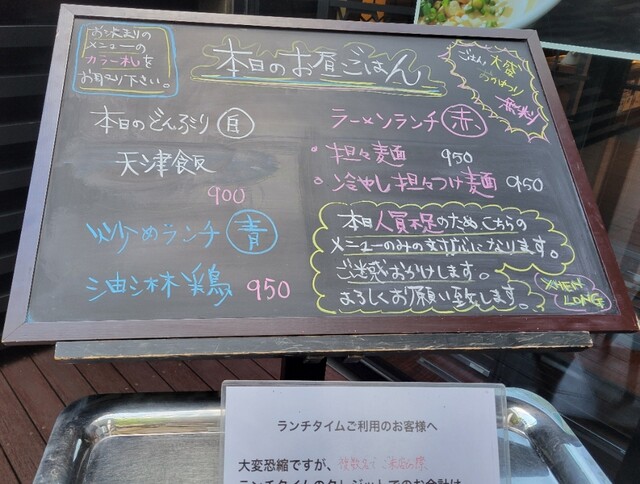 お決まりの
メニューの
カラー札を
お取り下さい。
本日のお昼ごはん
ごはん 大盛
おつゆつき
無料
本日のどんぶり 白
天津飯
900
炒めランチ 青
油淋鶏 950
ラーメンランチ 赤
・担々麺 950
・冷やし担々つけ麺 950
本日人員不足のためこちらの
メニューのみの対応になります。
ご迷惑おかけします。
よろしくお願い致します。
XHEN
LONG
ランチタイムご利用のお客様へ
大変恐縮ですが、複数名でご来店の際、
ランチタイムのクレジットでのお会計は